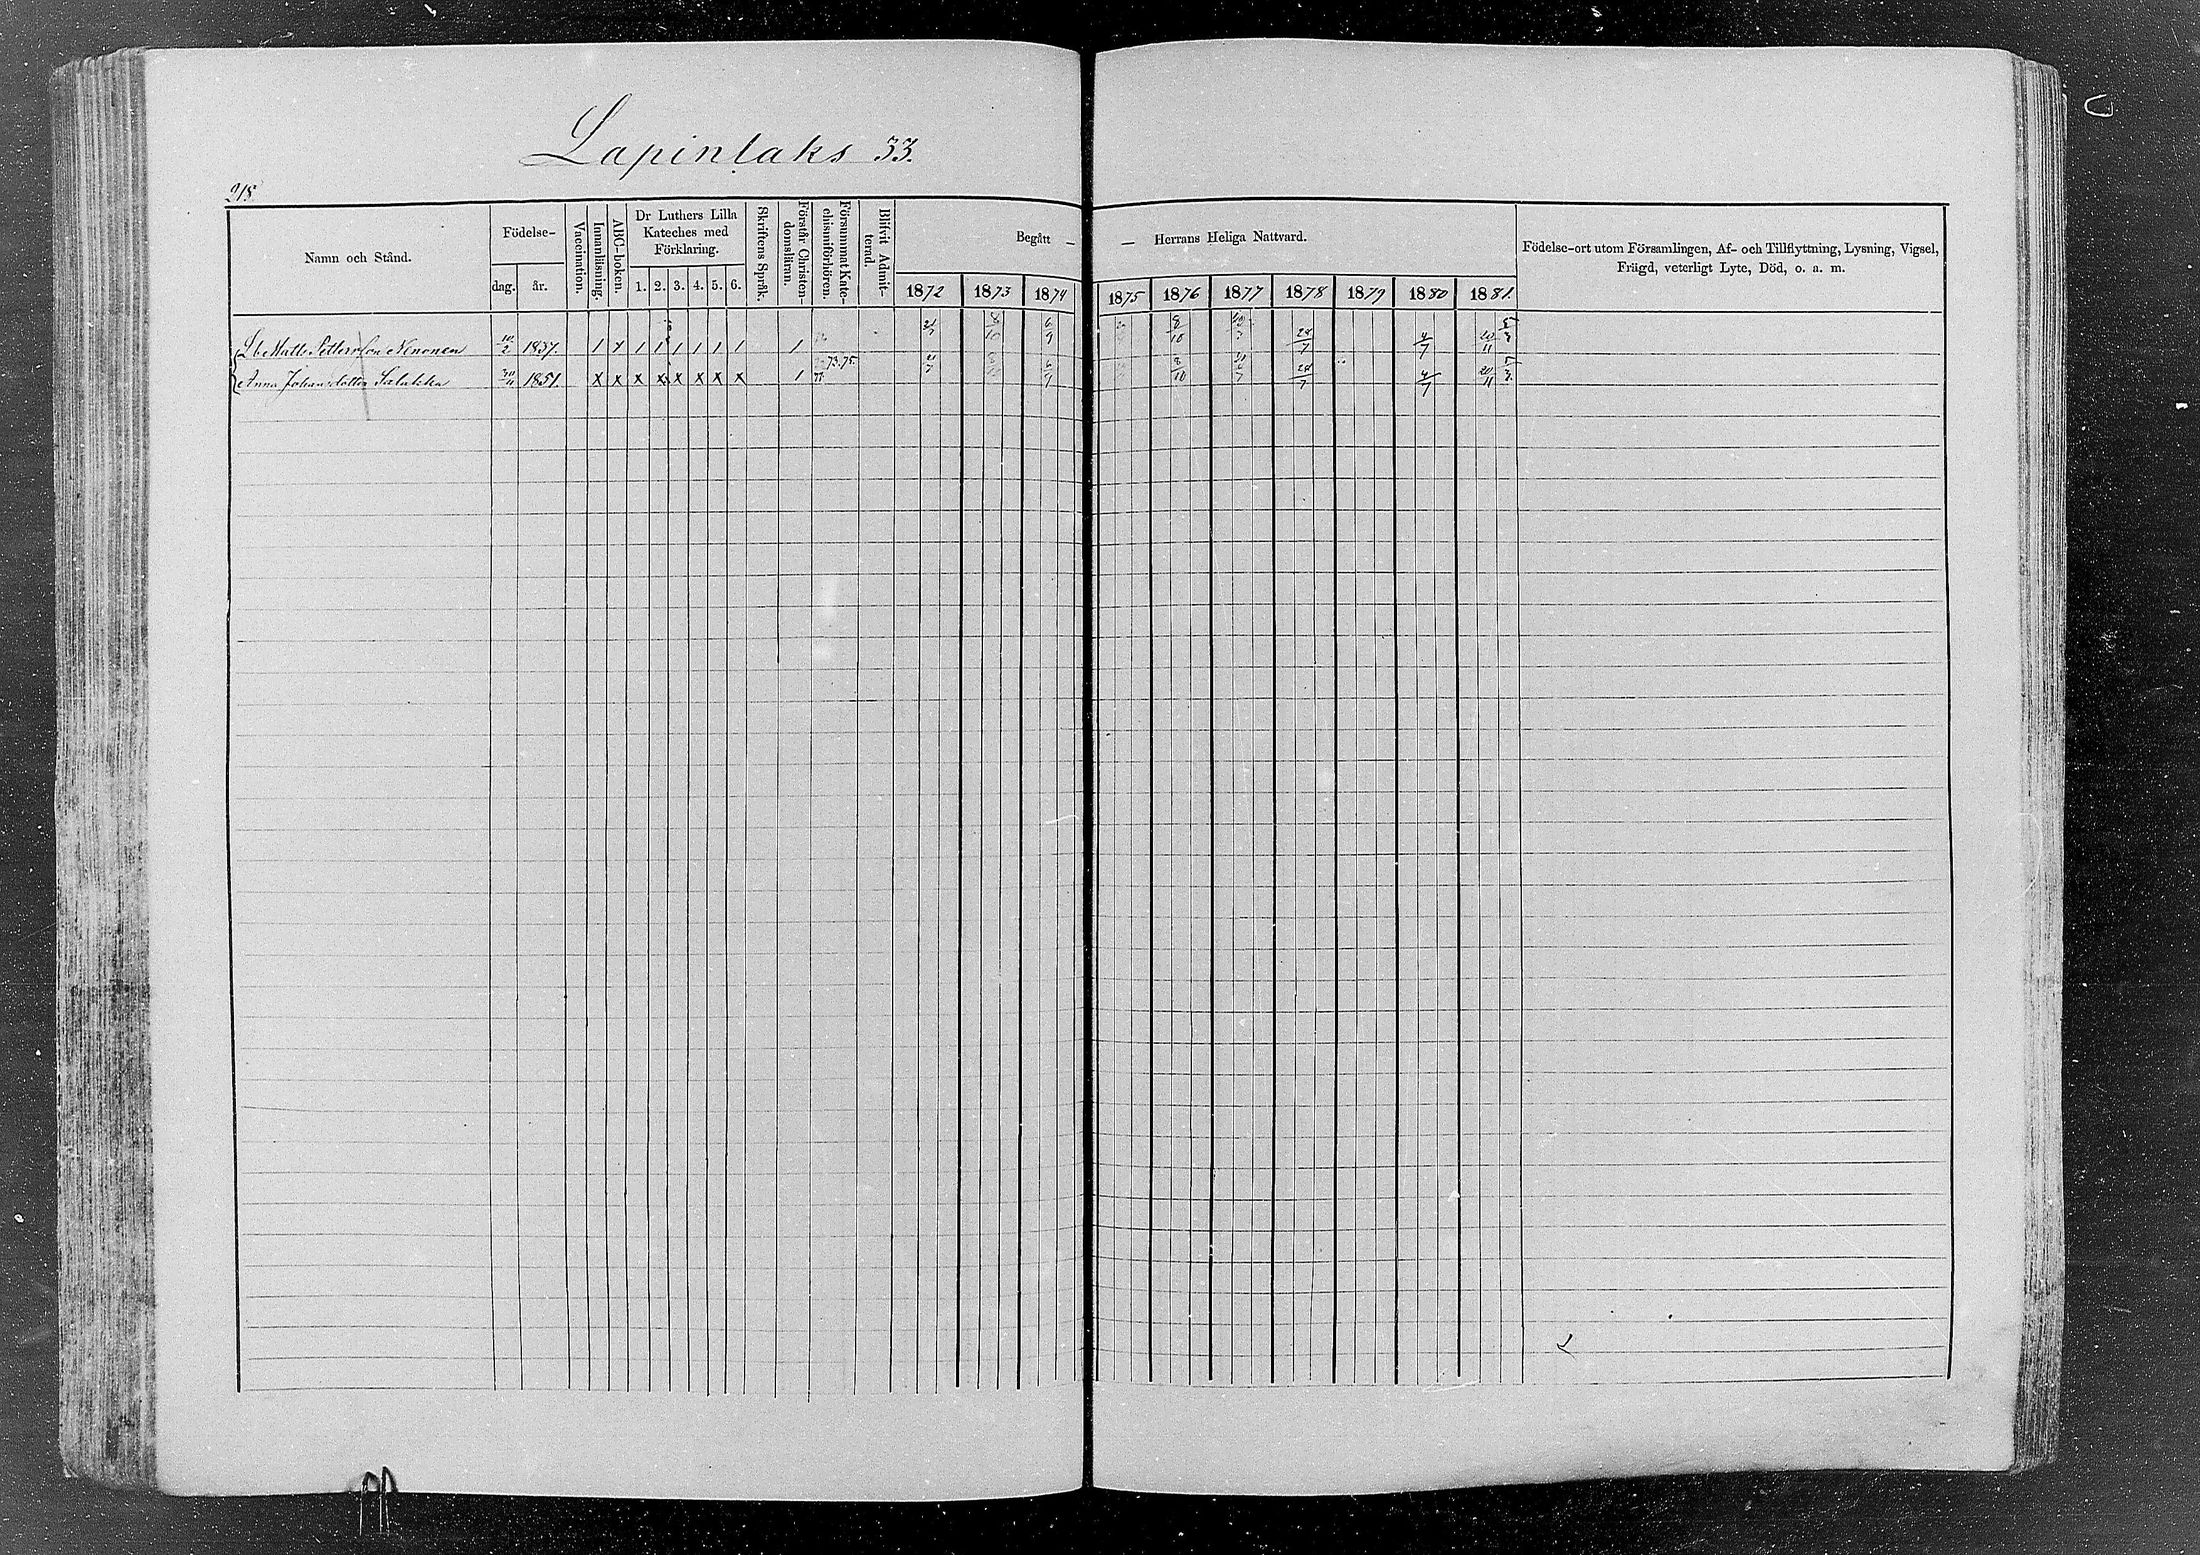 Lapinlaks 33.
218.
Namn och Stånd.
Födelse-
dag.
år.
Vaccination.
Innanläsning.
ABC-boken.
Dr Luthers Lilla
Kateches med
Förklaring.
1. 2. 3. 4. 5. 6.
Skriftens Språk.
Förstår Christen-
domsläran.
Försummat Kate-
chismiförhören.
Blifvit Admit-
terad.
Begått — — Herrans Heliga Nattvard.
1872 1873 1874 1875 1876 1877 1878 1879 1880 1881.
Födelse-ort utom Församlingen, Af- och Tillflyttning, Lysning, Vigsel,
Frägd, veterligt Lyte, Död, o. a. m.
Matts Pettersson Nenonen 10/2 1837. 21/7 8/10 6/9 8/10 28/7 4/7 20/11
Anna Johansdotter Salakka 1851. x x x x x x x x 1 73.75. 21/7 8/10 28/7 4/7 20/11